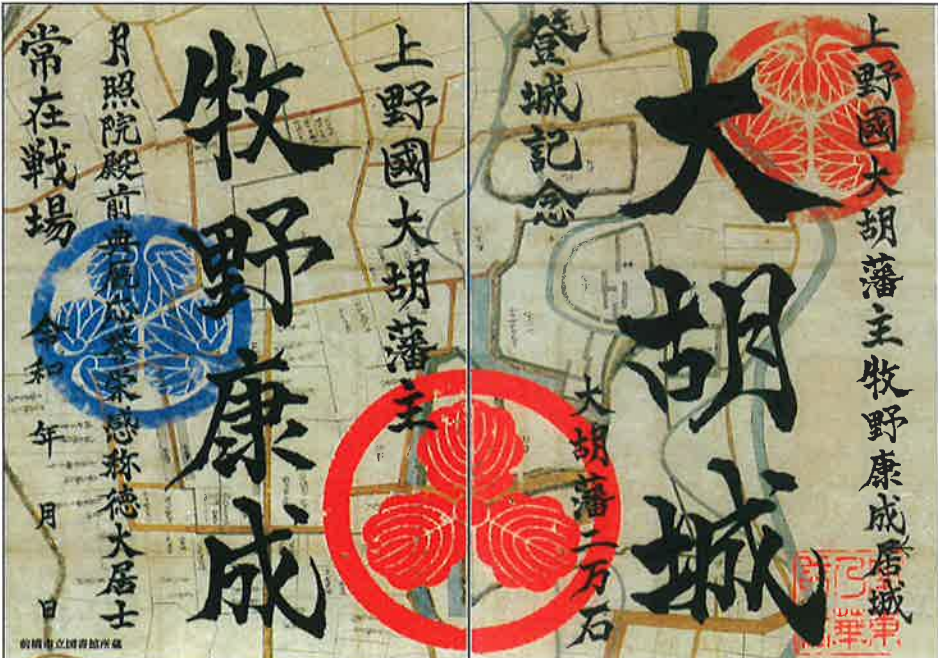 上野國大胡藩主牧野康成居城
大胡城
大胡藩二万石
登城記念
上野國大胡藩主
牧野康成
月照院殿前典厩
感称徳大居士
常在戦場
令和 年 月 日
前橋市立図書館所蔵